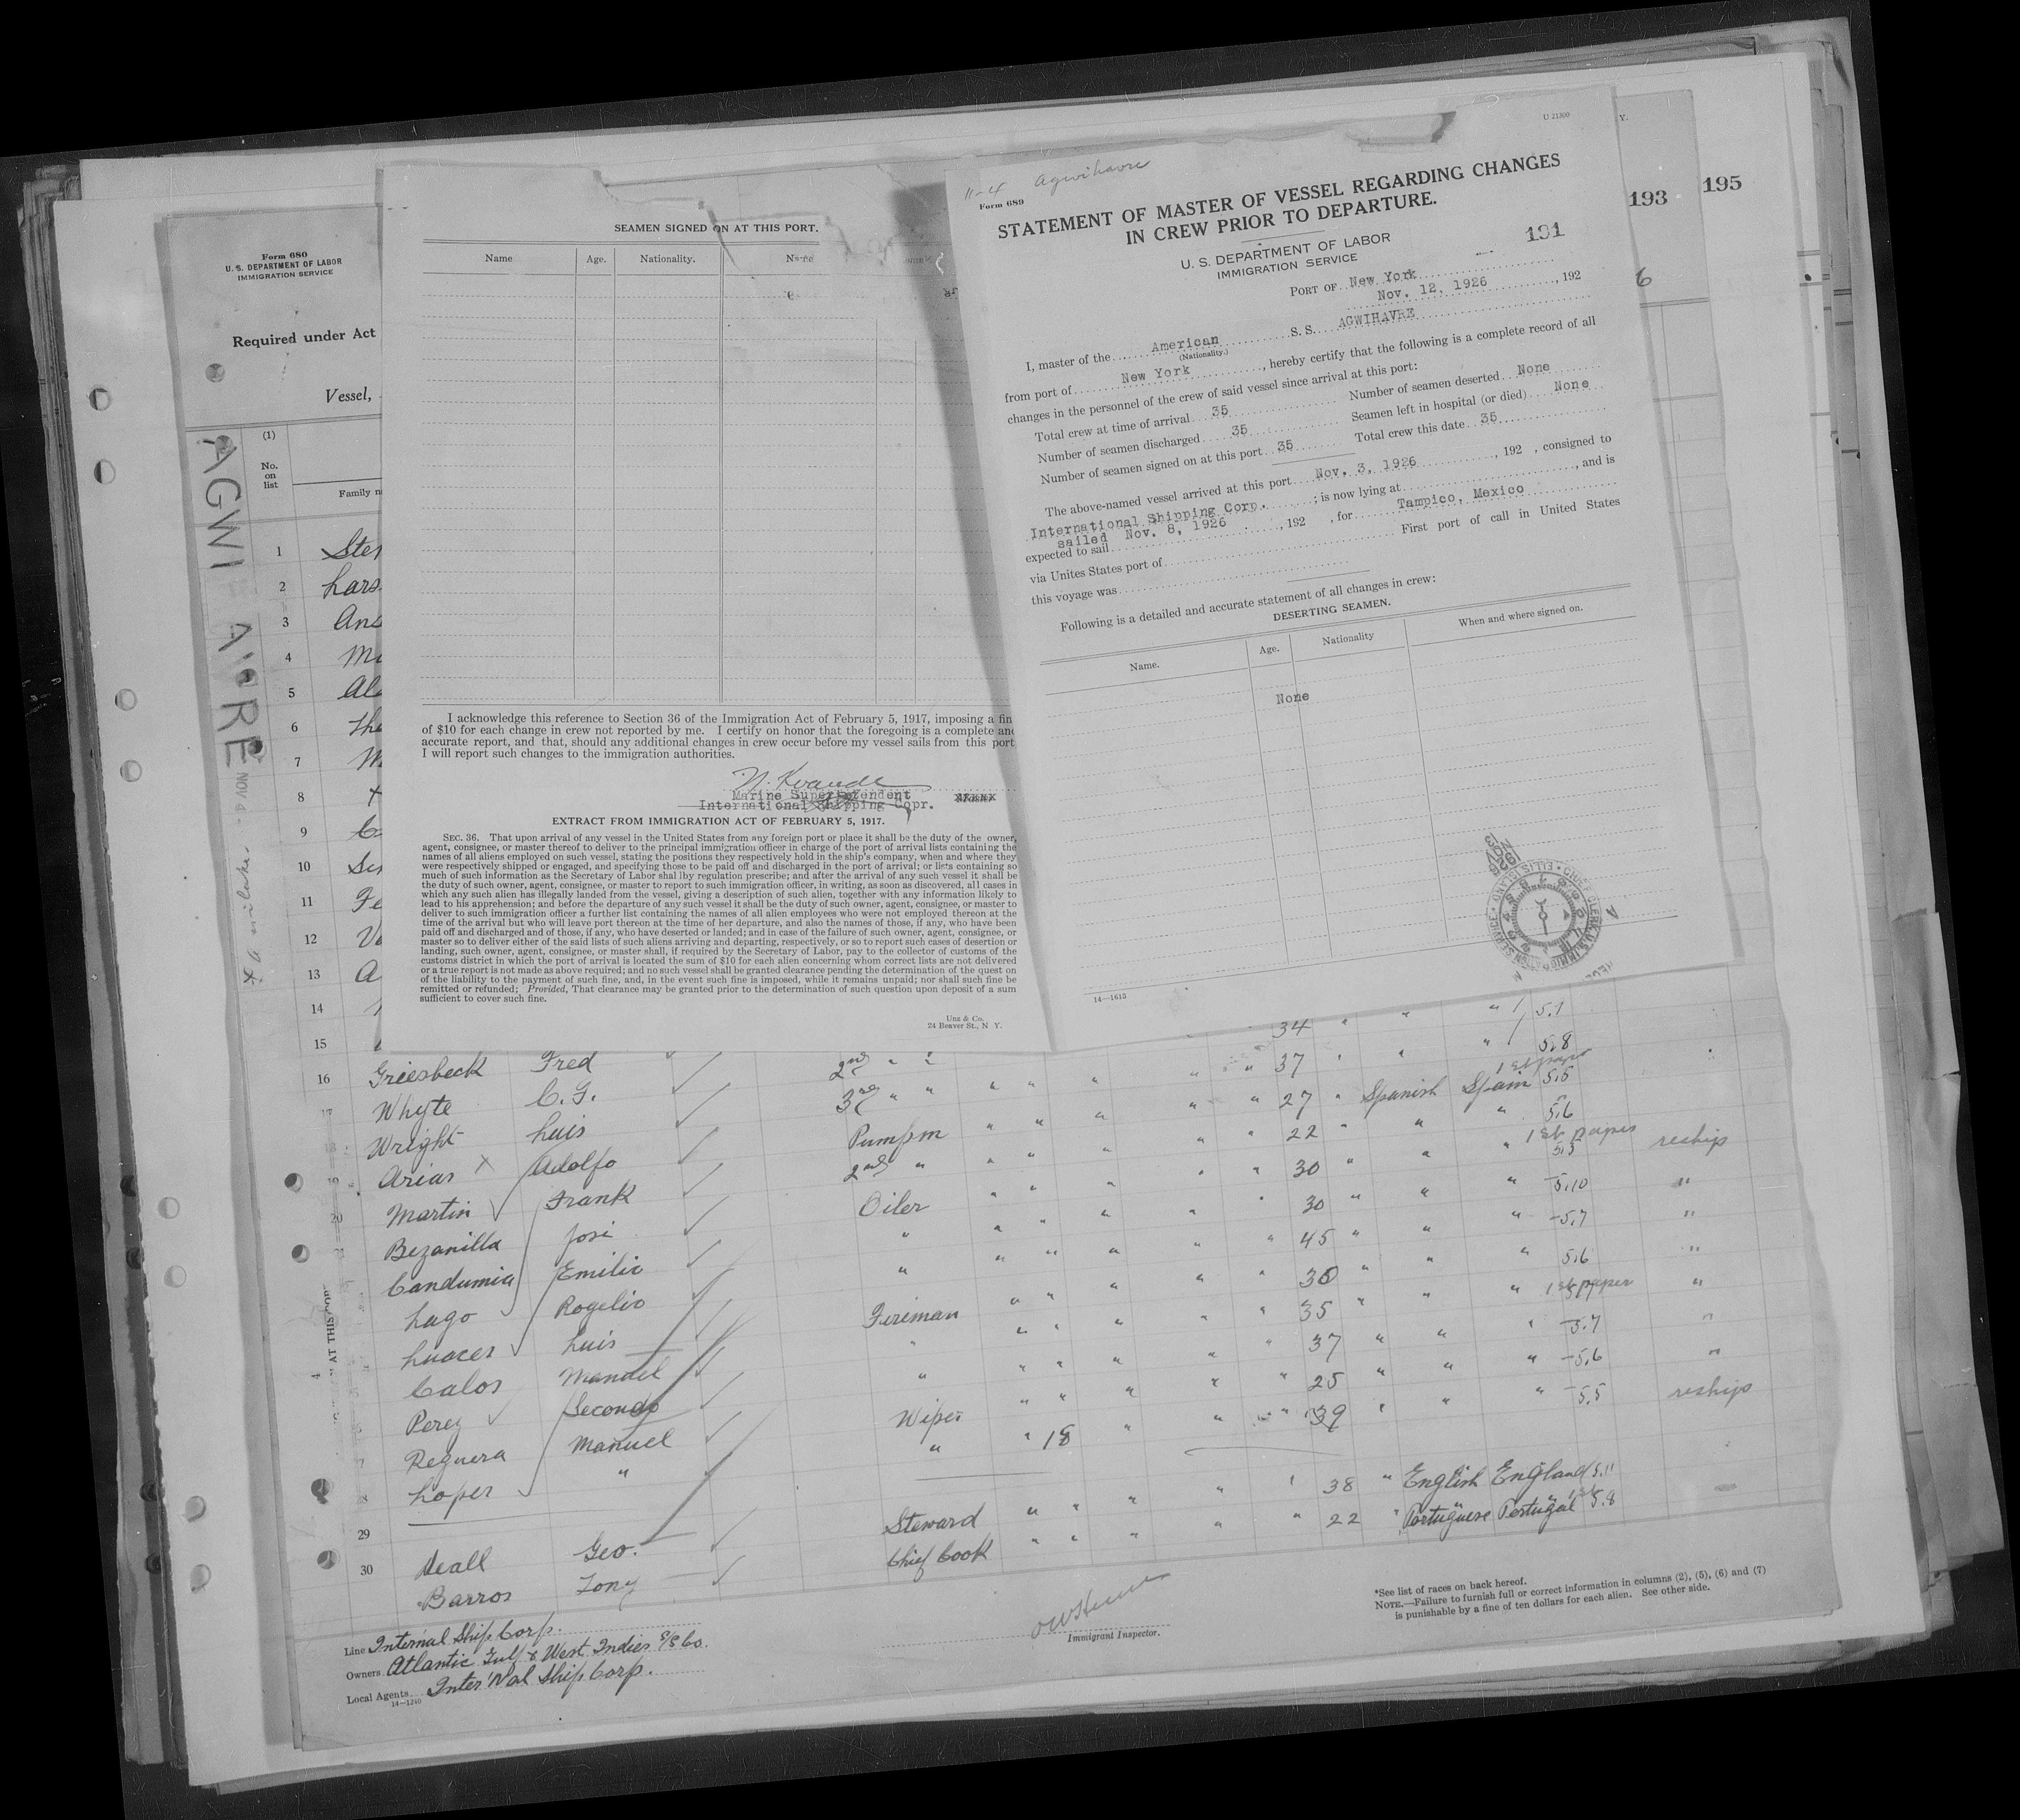 Form 680
U. S. DEPARTMENT OF LABOR
IMMIGRATION SERVICE
Required under Act
Vessel,
(1)
No.
on
list
Family n
AGWI
NOV 4
1 Ster
2 Lars
3 Ans
4
5
6 The
7 M
8
9
10
11 Fe
12
13 A
14
15
SEAMEN SIGNED ON AT THIS PORT.
Name Age. Nationality. Name
I acknowledge this reference to Section 36 of the Immigration Act of February 5, 1917, imposing a fin
of $10 for each change in crew not reported by me. I certify on honor that the foregoing is a complete and
accurate report, and that, should any additional changes in crew occur before my vessel sails from this port
I will report such changes to the immigration authorities.
Marine Superintendent
International Shipping Copr.
EXTRACT FROM IMMIGRATION ACT OF FEBRUARY 5, 1917.
SEC. 36. That upon arrival of any vessel in the United States from any foreign port or place it shall be the duty of the owner,
agent, consignee, or master thereof to deliver to the principal immigration officer in charge of the port of arrival lists containing the
names of all aliens employed on such vessel, stating the positions they respectively hold in the ship's company, when and where they
were respectively shipped or engaged, and specifying those to be paid off and discharged in the port of arrival; or lists containing so
much of such information as the Secretary of Labor shal lby regulation prescribe; and after the arrival of any such vessel it shall be
the duty of such owner, agent, consignee, or master to report to such immigration officer, in writing, as soon as discovered, all cases in
which any such alien has illegally landed from the vessel, giving a description of such alien, together with any information likely to
lead to his apprehension; and before the departure of any such vessel it shall be the duty of such owner, agent, consignee, or master to
deliver to such immigration officer a further list containing the names of all alien employees who were not employed thereon at the
time of the arrival but who will leave port thereon at the time of her departure, and also the names of those, if any, who have been
paid off and discharged and of those, if any, who have deserted or landed; and in case of the failure of such owner, agent, consignee, or
master so to deliver either of the said lists of such aliens arriving and departing, respectively, or so to report such cases of desertion or
landing, such owner, agent, consignee, or master shall, if required by the Secretary of Labor, pay to the collector of customs of the
customs district in which the port of arrival is located the sum of $10 for each alien concerning whom correct lists are not delivered
or a true report is not made as above required; and no such vessel shall be granted clearance pending the determination of the quest on
of the liability to the payment of such fine, and, in the event such fine is imposed, while it remains unpaid; nor shall such fine be
remitted or refunded; Provided, That clearance may be granted prior to the determination of such question upon deposit of a sum
sufficient to cover such fine.
Unz & Co.
24 Beaver St., N Y.
U 21300
11-4 Agwihavre
Form 689
STATEMENT OF MASTER OF VESSEL REGARDING CHANGES
IN CREW PRIOR TO DEPARTURE.
U. S. DEPARTMENT OF LABOR
IMMIGRATION SERVICE
191
193
195
Y.
6
PORT OF New York
Nov. 12, 1926, 192
I, master of the American S. S. AGWIHAVRE
(Nationality.)
from port of New York, hereby certify that the following is a complete record of all
changes in the personnel of the crew of said vessel since arrival at this port:
Total crew at time of arrival 35 Number of seamen deserted None
Number of seamen discharged 35 Seamen left in hospital (or died) None
Number of seamen signed on at this port 35 Total crew this date 35
The above-named vessel arrived at this port Nov. 3, 1926, 192 , consigned to
International Shipping Corp. ; is now lying at , and is
expected to sail sailed Nov. 8, 1926, 192 , for Tampico, Mexico
via Unites States port of First port of call in United States
this voyage was
Following is a detailed and accurate statement of all changes in crew:
DESERTING SEAMEN.
Name. Age. Nationality When and where signed on.
None
1926 NOV 13
CHIEF CLERK, U.S. IMMIGRATION SERVICE ELLIS ISLAND
14—1613
34 " " " 5.1
16 Griesbeck Fred 2nd " " 37 " " " 5.8
Whyte C. G. 3rd " " " " " " " 27 " Spanish Spain 5.5 1st paper
Wright Luis Pumpm " " " " " 22 " " " 5.6
Arias x Adolfo 2nd " " " " " " 30 " " " 1st paper 5.5 reship
Martin Frank Oiler " " " " 30 " " " 5.10 "
Bezanilla Jose " " " " " " 45 " " " 5.7 "
Candumia Emilio " " " " " " 30 " " " 5.6 "
Lago Rogelio Fireman " " " " " 35 " " " 1st paper "
Luaces Luis " " " " " " 37 " " " 5.7 "
Calos Manuel " " " " " " 25 " " " 5.6 "
Perez Secondo Wiper " " " " " 39 " " " 5.5 reship
Reguera Manuel " " 18 "
Loper "
29
Deall Geo. Steward " " " " " 38 " English England 5.11
30
Barros Tony Chief Cook " " " " " 22 " Portuguese Portugal 5.8
AT THIS PORT
Line Internal Ship Corp.
Owners Atlantic Gulf & West Indies S/S Co.
Local Agents Inter'Nal Ship Corp.
14—1240
Immigrant Inspector.
*See list of races on back hereof.
NOTE.—Failure to furnish full or correct information in columns (2), (5), (6) and (7)
is punishable by a fine of ten dollars for each alien. See other side.